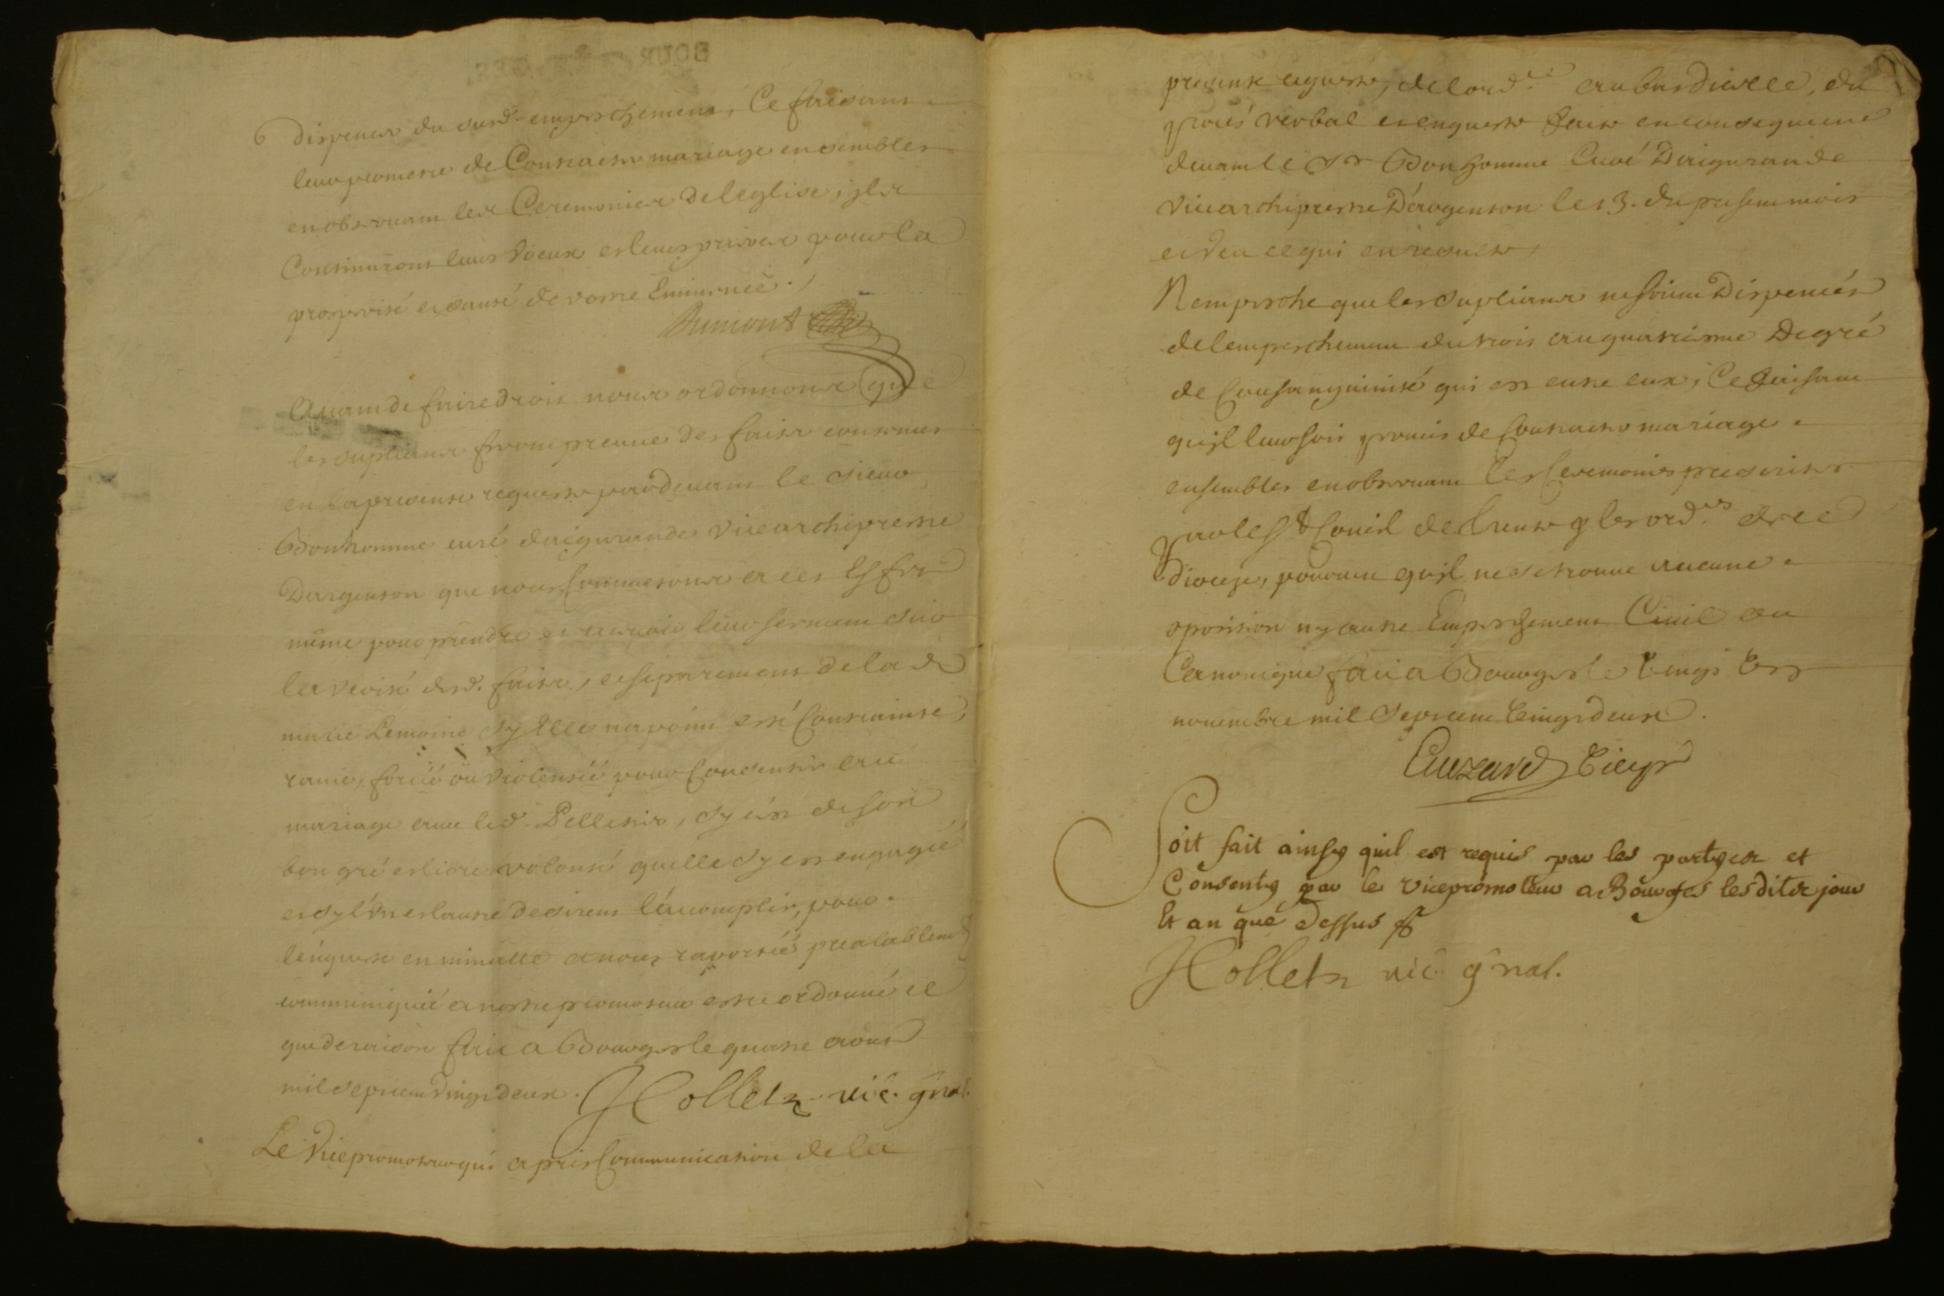 dispenser du surd. empeschement, Ce faisant
leur permettre de Contracter mariage ensembles
en observant les Ceremonies de leglise, ils
Continuront leurs voeux et leurs prieres pour la
prosperité et santé de vostre Eminence.
Dumont
Avant de faire droit nous ordonnons que
les supliants feront preuve des faits contenus
en la presente requeste pardevant le sieur
Bonhomme curé daigurandes vicearchiprestre
Dargenton que nous Commetons a cet Effet
même pour prendre et recevoir leur serment sur
la verité desd. faits, et separement de lad.
marie Lemoine sy Elle na point esté Contrainte,
ravie, forcée ou violentée pour Consentir au
mariage avec led. Pelletier, sy cest de son
bon gré et libre volonté quelle sy est engagée
et sy l'un et lautre desirent l'accomplir, pour
lenqueste en minutte a nous raportée prealablemt
communiquée a nostre promoteur estre ordonné ce
que de raison fait a Bourges le quatre aoust
mil sept cent vingt deux. Hollet vic. gnal.
Le Vicepromoteur qui a pris Communication de la
presente requeste, de lord.ce au bas dicelle, du
procés verbal et enqueste faite en consequence
devant le Sr Bonhomme Curé Daigurande
vicearchiprestre D'argenton le 13. du present mois
et veu ce qui en resulte,
Nempesche que les supliants ne soient Dispencés
de lempeschement du trois au quatriesme Degré
de Consanguinité qui est entre eux, Ce faisant
quil leur soit permis de Contracter mariage
ensembles en observant les Ceremonies prescrites
par le St Concil de trente & les ord.ces de ce
diocese, pourveu quil ne se trouve aucune
oposition ny autre Empeschement Civil ou
Canonique fait a Bourges le vingt
novembre mil sept cent vingt deux.
Auzard
Soit fait ainsy quil est requis par les partyes et
Consenty par le vicepromoteur a Bourges lesdits jour
Et an que Dessus
Hollet vic. gnal.